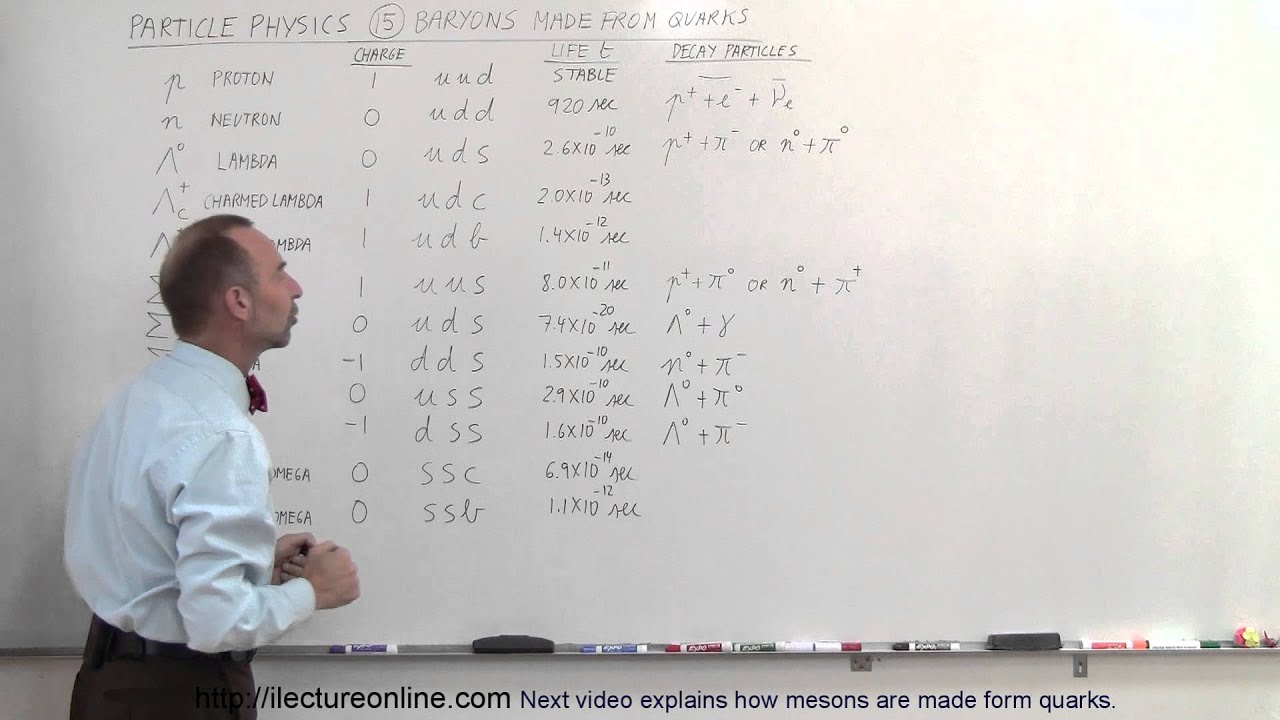 PARTICLE PHYSICS ⑮ BARYONS MADE FROM QUARKS
CHARGE LIFE t DECAY PARTICLES
p PROTON 1 uud STABLE —
n NEUTRON 0 udd 920 sec p⁺ + e⁻ + ν̄ₑ
Λ⁰ LAMBDA 0 uds 2.6X10⁻¹⁰ sec p⁺ + π⁻ OR n⁰ + π⁰
Λc⁺ CHARMED LAMBDA 1 udc 2.0X10⁻¹³ sec
1 udb 1.4X10⁻¹² sec
1 uus 8.0X10⁻¹¹ sec p⁺ + π⁰ OR n⁰ + π⁺
0 uds 7.4X10⁻²⁰ sec Λ⁰ + γ
-1 dds 1.5X10⁻¹⁰ sec n⁰ + π⁻
0 uss 2.9X10⁻¹⁰ sec Λ⁰ + π⁰
-1 dss 1.6X10⁻¹⁰ sec Λ⁰ + π⁻
OMEGA 0 ssc 6.9X10⁻¹⁴ sec
OMEGA 0 ssb 1.1X10⁻¹² sec
http://ilectureonline.com Next video explains how mesons are made form quarks.